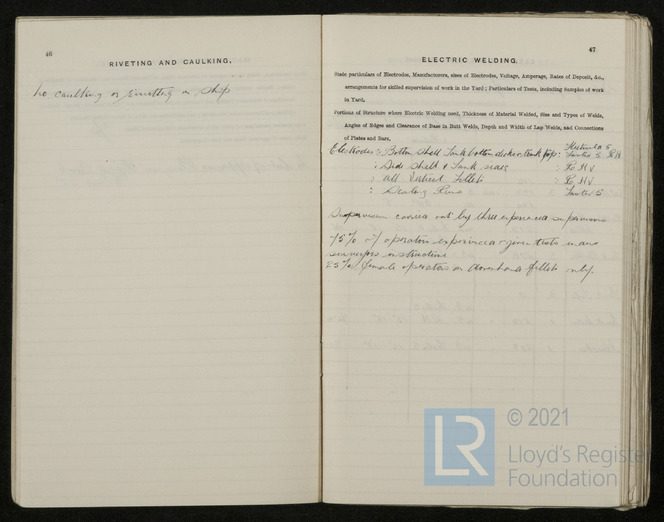 46
RIVETING AND CAULKING.
No caulking or rivetting on ship
47
ELECTRIC WELDING.
State particulars of Electrodes, Manufacturers, sizes of Electrodes, Voltage, Amperage, Rates of Deposit, &c.,
arrangements for skilled supervision of work in the Yard; Particulars of Tests, including Samples of work
in Yard.
Portions of Structure where Electric Welding used, Thickness of Material Welded, Size and Types of Welds,
Angles of Edges and Clearance of Base in Butt Welds, Depth and Width of Lap Welds, and Connections
of Plates and Bars.
Electrodes: Bottom Shell Tank bottom
: Side Shell & Tank
: all Vertical Fillets
: Sealing Runs
Supervision carried out by three experienced supervisors
75% of operators experienced given tests
surveyors instructions
25% female operators on downhand fillets only.
© 2021
LR
Lloyd's Register
Foundation